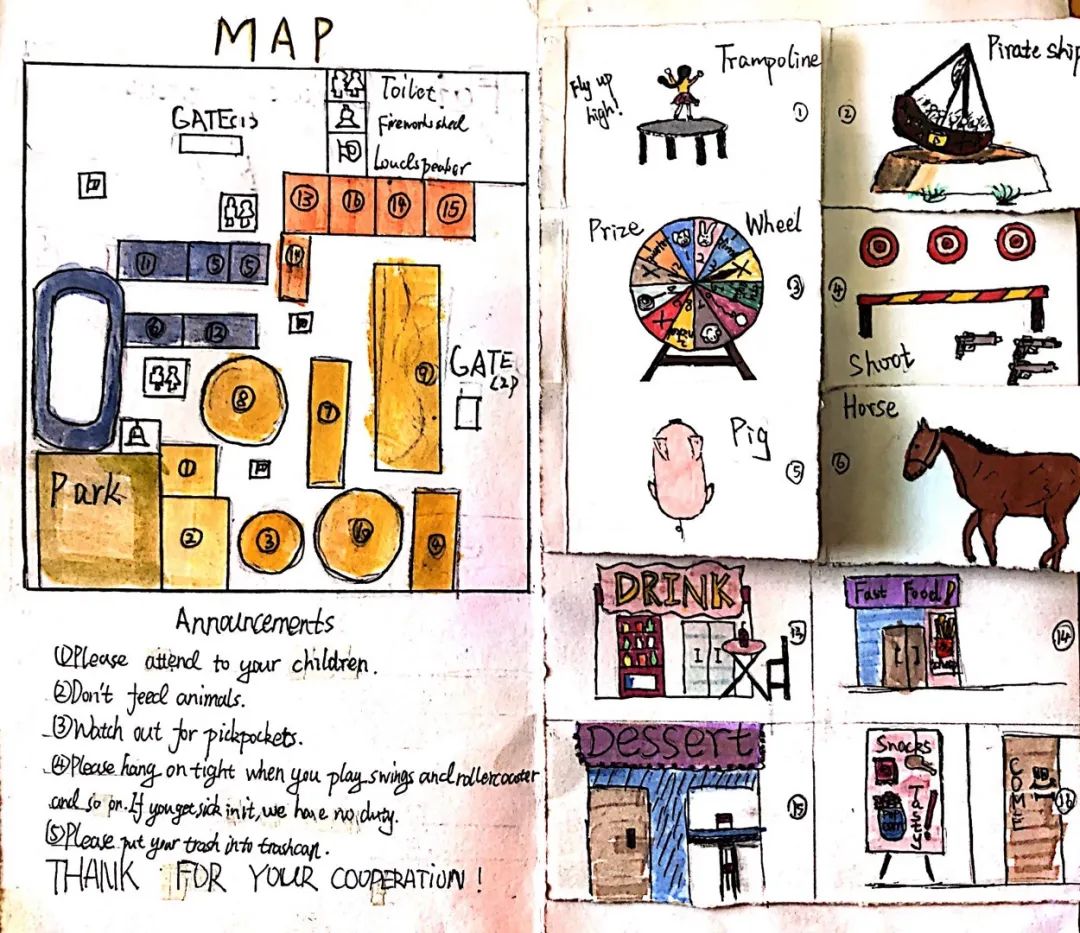 MAP
Toilet
Firework shed
Loudspeaker
GATE(1)
13 16 14 15
11 5 5
6 12
GATE
(2)
8
7
9
1
Park
2
3
10
4
Announcements
①Please attend to your children.
②Don't feed animals.
③Watch out for pickpockets.
④Please hang on tight when you play swings and rollercoaster
and so on. If you get sick in it, we have no duty.
⑤Please put your trash into trashcan.
THANK FOR YOUR COOPERATION!
Trampoline
Fly up
high!
①
Pirate ship
②
Prize Wheel
③
④
Shoot
Pig
⑤
Horse
⑥
DRINK
13
Fast Food!
14
Dessert
15
Snacks
Tasty!
COME
16